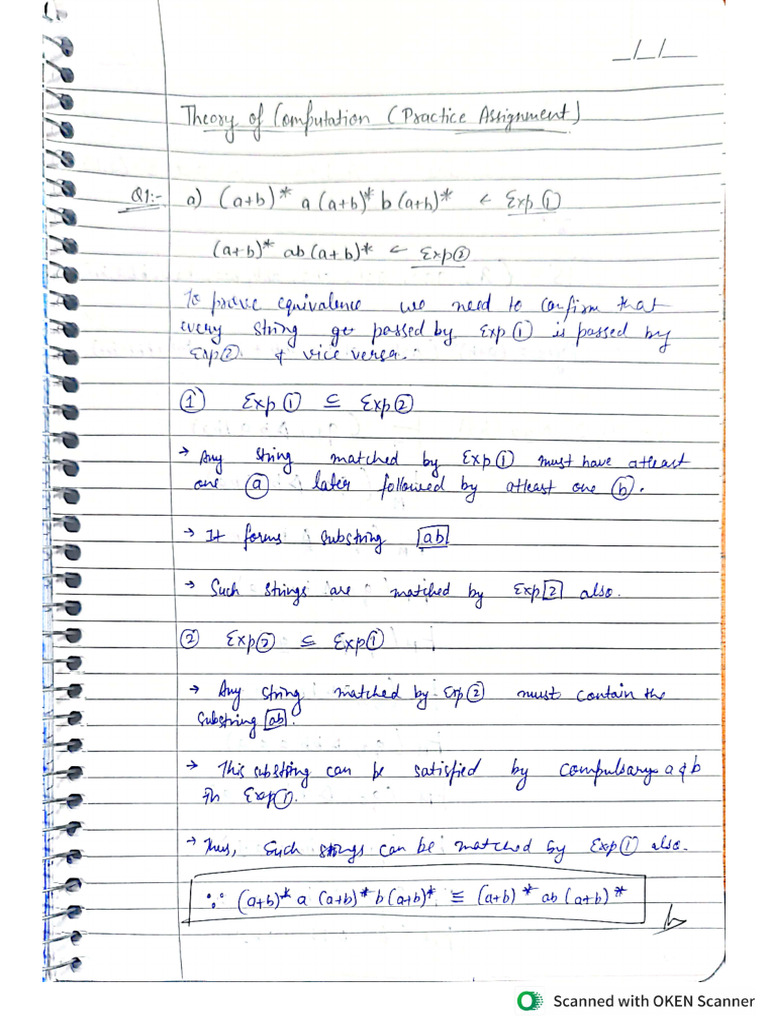 _/_/__
Theory of Computation (Practice Assignment)
Q1:- a) (a+b)* a (a+b)* b (a+b)* ← Exp ①
(a+b)* ab (a+b)* ← Exp ②
To prove equivalence we need to confirm that
every string get passed by Exp ① is passed by
Exp ② & vice versa.
① Exp ① ⊆ Exp ②
→ Any string matched by Exp ① must have atleast
one ⓐ later followed by atleast one ⓑ.
→ It forms substring [ab]
→ Such strings are matched by Exp [2] also.
② Exp ② ⊆ Exp ①
→ Any string matched by Exp ② must contain the
substring [ab].
→ This substring can be satisfied by compulsary a & b
in Exp ①.
→ Thus, Such strings can be matched by Exp ① also.
∵ (a+b)* a (a+b)* b (a+b)* ≡ (a+b)* ab (a+b)*
Scanned with OKEN Scanner